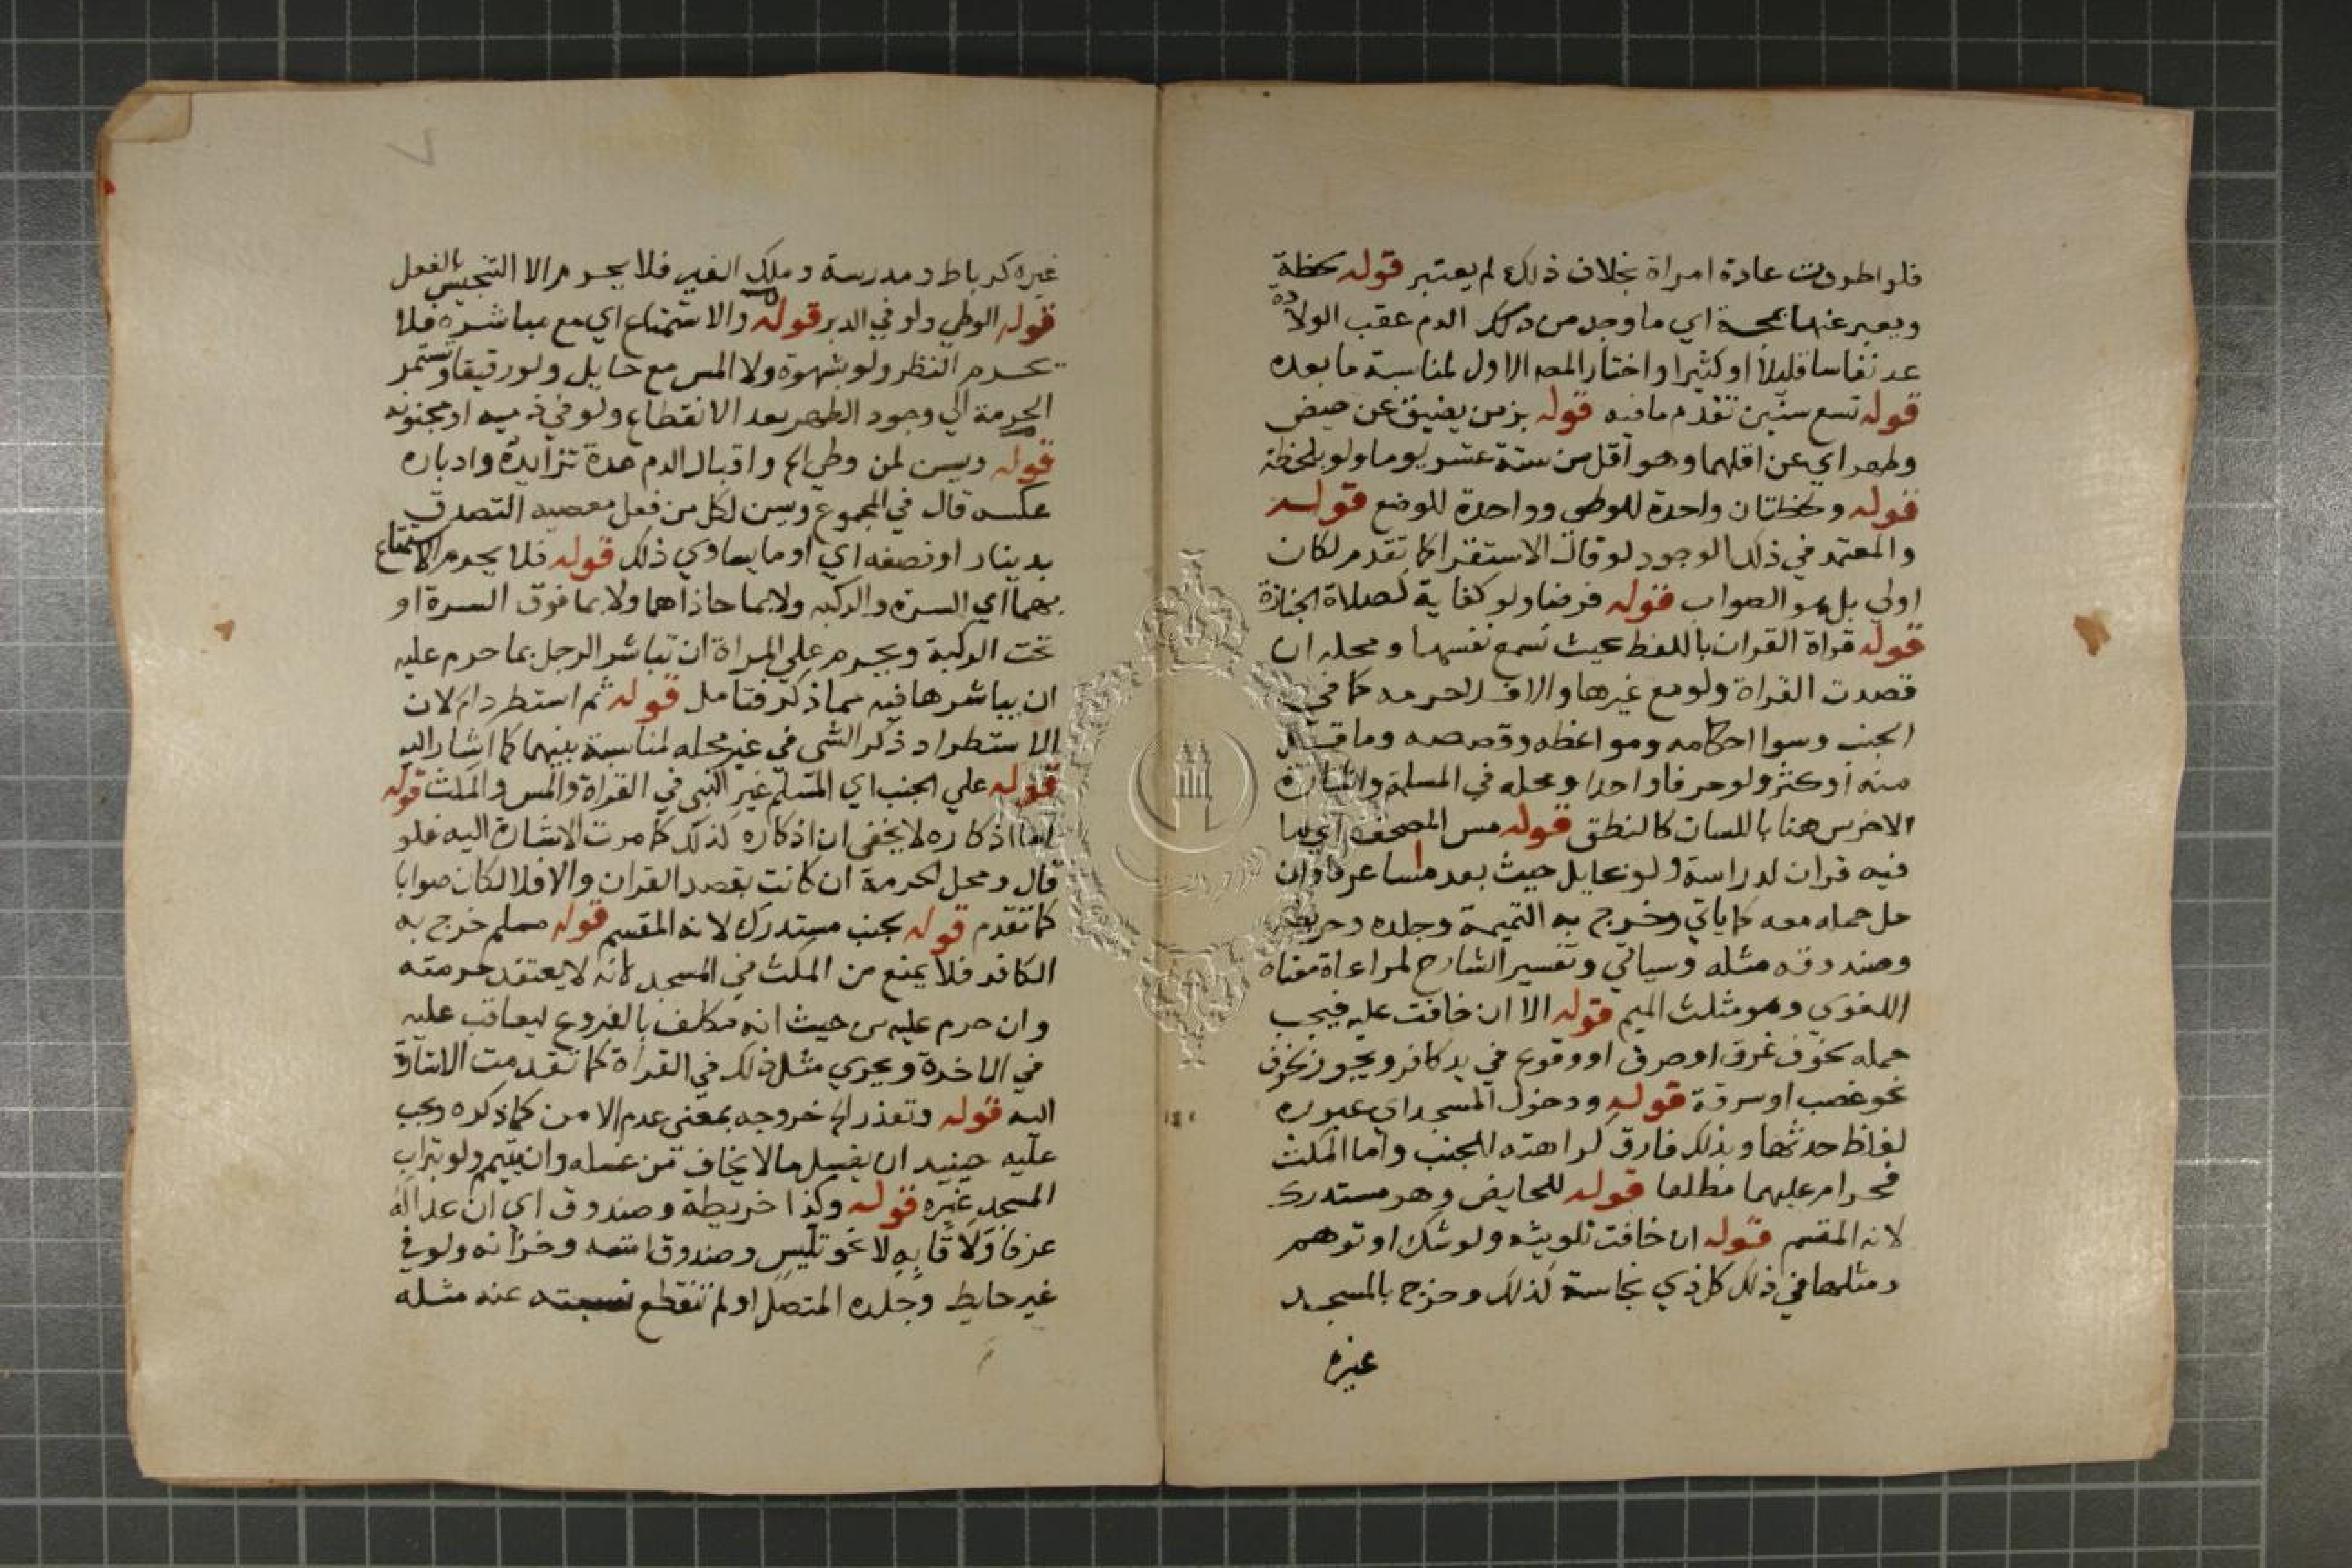 فلو اطردت عادة امراة بخلاف ذلك لم يعتبر قوله لحظة
ويعبر عنها بمجة اي ما وجد من ذلك الدم عقب الولادة
عد نفاسا قليلا او كثيرا واختار المصـ الاول لمناسبة ما بعده
قوله تسع سنين تقدم ما فيه قوله بزمن يضيق عن حيض
وطهر اي عن اقلهما وهو أقل من ستة عشر يوما ولو بلحظة
قوله ولحظتان واحدة للوطي وواحدة للوضع قوله
والمعتمد في ذلك الوجود لو قال الاستقرا كما تقدم لكان
اولي بل هو الصواب قوله فرضا ولو كفاية كصلاة الجنازة
قوله قراة القران باللفظ بحيث تسمع نفسها ومحله ان
قصدت القراة ولو مع غيرها والا فلا حرمه كما في
الجنب وسوا احكامه ومواعظه وقصصه وما
منه او كثر ولو حرفا واحدا ومحله في المسلمة واشارة
الاخرس هنا باللسان كالنطق قوله مس المصحف اي ما
فيه قران لدراسة ولو بحايل حيث يعد ماسا عرفا وان
حل حمله معه كما ياتي وخرج به التميمة وجلده وخريطته
وصندوقه مثله وسياتي وتفسير الشارح لمراعاة معناه
اللغوي وهو مثلث الميم قوله الا ان خافت عليه فيجب
حمله لخوف غرق او حرق او وقوع في يد كافر ويجوز لخوف
نحو غصب او سرقة قوله ودخول المسجد اي عبوره
لغلظ حدثها وبذلك فارق كراهته للجنب واما المكث
فحرام عليهما مطلقا قوله للحايض وهو مستدرك
لانه المقسم قوله ان خافت تلويثه ولو شك او توهم
ومثلها في ذلك كل ذي نجاسة كذلك وخرج بالمسجد
غيره
غيره كرباط ومدرسة وملك الغير فلا يحرم الا التنجيس بالفعل
قوله الوطي ولو في الدبر قوله والاستمتاع اي مع مباشرة فلا
يحرم النظر ولو بشهوة ولا المس مع حايل ولو رقيقا وتستمر
الحرمة الي وجود الطهر بعد الانقطاع ولو في ذميه او مجنونه
قوله ويسن لمن وطي الخ واقبال الدم مدة تزايده وادباره
عكسه قال في المجموع ويسن لكل من فعل معصيه التصدق
بدينار او نصفه اي او ما يساوي ذلك قوله فلا يحرم الاستمتاع
بهما اي السرة والركبه ولا بما حاذاهما ولا بما فوق السرة او
تحت الركبة ويحرم علي المراة ان تباشر الرجل بما حرم عليه
ان يباشرها فيه مما ذكر فتامل قوله ثم استطرد الخ لان
الاستطراد ذكر الشي في غير محله لمناسبة بينهما كما اشار اليه
قوله علي الجنب اي المسلم غير النبي في القراة والمس والمكث قوله
اما اذكاره لا يخفي ان اذكاره كذلك كما مرت الاشارة اليه فلو
قال ومحل الحرمة ان كانت بقصد القران والا فلا لكان صوابا
كما تقدم قوله بجنب مستدرك لانه المقسم قوله مسلم خرج به
الكافر فلا يمنع من المكث في المسجد لانه لا يعتقد حرمته
وان حرم عليه من حيث انه مكلف بالفروع ليعاقب عليه
في الاخرة ويجري مثل ذلك في القراة كما تقدمت الاشارة
اليه قوله وتعذر الخ خروجه بمعني عدم الامن كما ذكره ويجب
عليه حينيد ان يغسل ما لا يخاف من غسله وان يتيمم ولو بتراب
المسجد غيره قوله وكذا خريطة وصندوق اي ان عد اله
عرفا ولاقا به لا نحو تليس وصندوق امتعه وخزانه ولو في
غير حايط وجلده المتصل او لم تنقطع نسبته عنه مثله